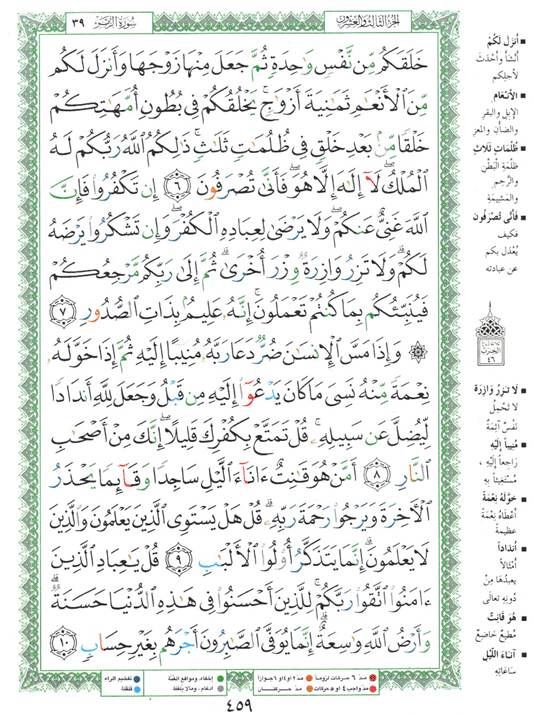 سورة الزمر ٣٩
الجزء الثالث والعشرون
خَلَقَكُم مِّن نَّفْسٍ وَٰحِدَةٍ ثُمَّ جَعَلَ مِنْهَا زَوْجَهَا وَأَنزَلَ لَكُم
مِّنَ ٱلْأَنْعَٰمِ ثَمَٰنِيَةَ أَزْوَٰجٍ ۚ يَخْلُقُكُمْ فِى بُطُونِ أُمَّهَٰتِكُمْ
خَلْقًا مِّنۢ بَعْدِ خَلْقٍ فِى ظُلُمَٰتٍ ثَلَٰثٍ ۚ ذَٰلِكُمُ ٱللَّهُ رَبُّكُمْ لَهُ
ٱلْمُلْكُ ۖ لَآ إِلَٰهَ إِلَّا هُوَ ۖ فَأَنَّىٰ تُصْرَفُونَ ٦ إِن تَكْفُرُوا۟ فَإِنَّ
ٱللَّهَ غَنِىٌّ عَنكُمْ ۖ وَلَا يَرْضَىٰ لِعِبَادِهِ ٱلْكُفْرَ ۖ وَإِن تَشْكُرُوا۟ يَرْضَهُ
لَكُمْ ۗ وَلَا تَزِرُ وَازِرَةٌ وِزْرَ أُخْرَىٰ ۗ ثُمَّ إِلَىٰ رَبِّكُم مَّرْجِعُكُمْ
فَيُنَبِّئُكُم بِمَا كُنتُمْ تَعْمَلُونَ ۚ إِنَّهُۥ عَلِيمٌۢ بِذَاتِ ٱلصُّدُورِ ٧
۞ وَإِذَا مَسَّ ٱلْإِنسَٰنَ ضُرٌّ دَعَا رَبَّهُۥ مُنِيبًا إِلَيْهِ ثُمَّ إِذَا خَوَّلَهُۥ
نِعْمَةً مِّنْهُ نَسِىَ مَا كَانَ يَدْعُوٓا۟ إِلَيْهِ مِن قَبْلُ وَجَعَلَ لِلَّهِ أَندَادًا
لِّيُضِلَّ عَن سَبِيلِهِۦ ۚ قُلْ تَمَتَّعْ بِكُفْرِكَ قَلِيلًا ۖ إِنَّكَ مِنْ أَصْحَٰبِ
ٱلنَّارِ ٨ أَمَّنْ هُوَ قَٰنِتٌ ءَانَآءَ ٱلَّيْلِ سَاجِدًا وَقَآئِمًا يَحْذَرُ
ٱلْءَاخِرَةَ وَيَرْجُوا۟ رَحْمَةَ رَبِّهِۦ ۗ قُلْ هَلْ يَسْتَوِى ٱلَّذِينَ يَعْلَمُونَ وَٱلَّذِينَ
لَا يَعْلَمُونَ ۗ إِنَّمَا يَتَذَكَّرُ أُو۟لُوا۟ ٱلْأَلْبَٰبِ ٩ قُلْ يَٰعِبَادِ ٱلَّذِينَ
ءَامَنُوا۟ ٱتَّقُوا۟ رَبَّكُمْ ۚ لِلَّذِينَ أَحْسَنُوا۟ فِى هَٰذِهِ ٱلدُّنْيَا حَسَنَةٌ ۗ
وَأَرْضُ ٱللَّهِ وَٰسِعَةٌ ۗ إِنَّمَا يُوَفَّى ٱلصَّٰبِرُونَ أَجْرَهُم بِغَيْرِ حِسَابٍ ١٠
■ أنزَلَ لَكُمْ
أنشأ وأحْدَثَ
لأجلِكم
■ الأنْعَام
الإبل والبقر
والضأن والمعز
■ ظُلُمَاتٍ ثَلَاثٍ
ظلمَةِ البَطْنِ
والرَّحِمِ
والمَشيمَةِ
■ فَأنَّى تُصْرَفُون
فكيف
يُعْدَل بكم
عن عبادته
الحزب
٤٦
■ لَا تَزِرُ وَازِرَةٌ
لا تَحْمِلُ
نَفْسٌ آثِمَةٌ
■ مُنِيباً إِلَيْهِ
رَاجعاً إلَيْهِ ،
مُسْتغيثاً به
■ خَوَّلَهُ نِعْمَةً
أعْطاهُ نِعْمَةً
عظيمةً
■ أندَاداً
أمْثالاً
يعبدُها مِنْ
دُونِه تعالَى
■ هُوَ قَانِتٌ
مُطيعٌ خاضِعٌ
■ آنَاءَ اللَّيْلِ
سَاعَاتِهِ
مدّ ٦ حركات لزوماً
مدّ ٢ أو ٤ أو ٦ جوازاً
إخفاء، ومواقع الغُنَّة
تفخيم الراء
مدّ واجب ٤ أو ٥ حركات
مدّ حركتان
ادغام، ومالا يلفظ
قلقلة
٤٥٩